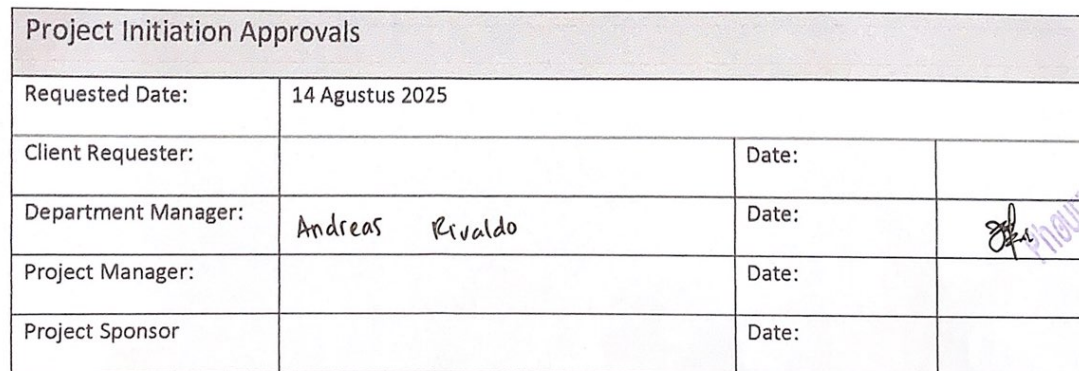 Project Initiation Approvals
Requested Date: 14 Agustus 2025
Client Requester: Date:
Department Manager: Andreas Rivaldo Date:
Project Manager: Date:
Project Sponsor Date: